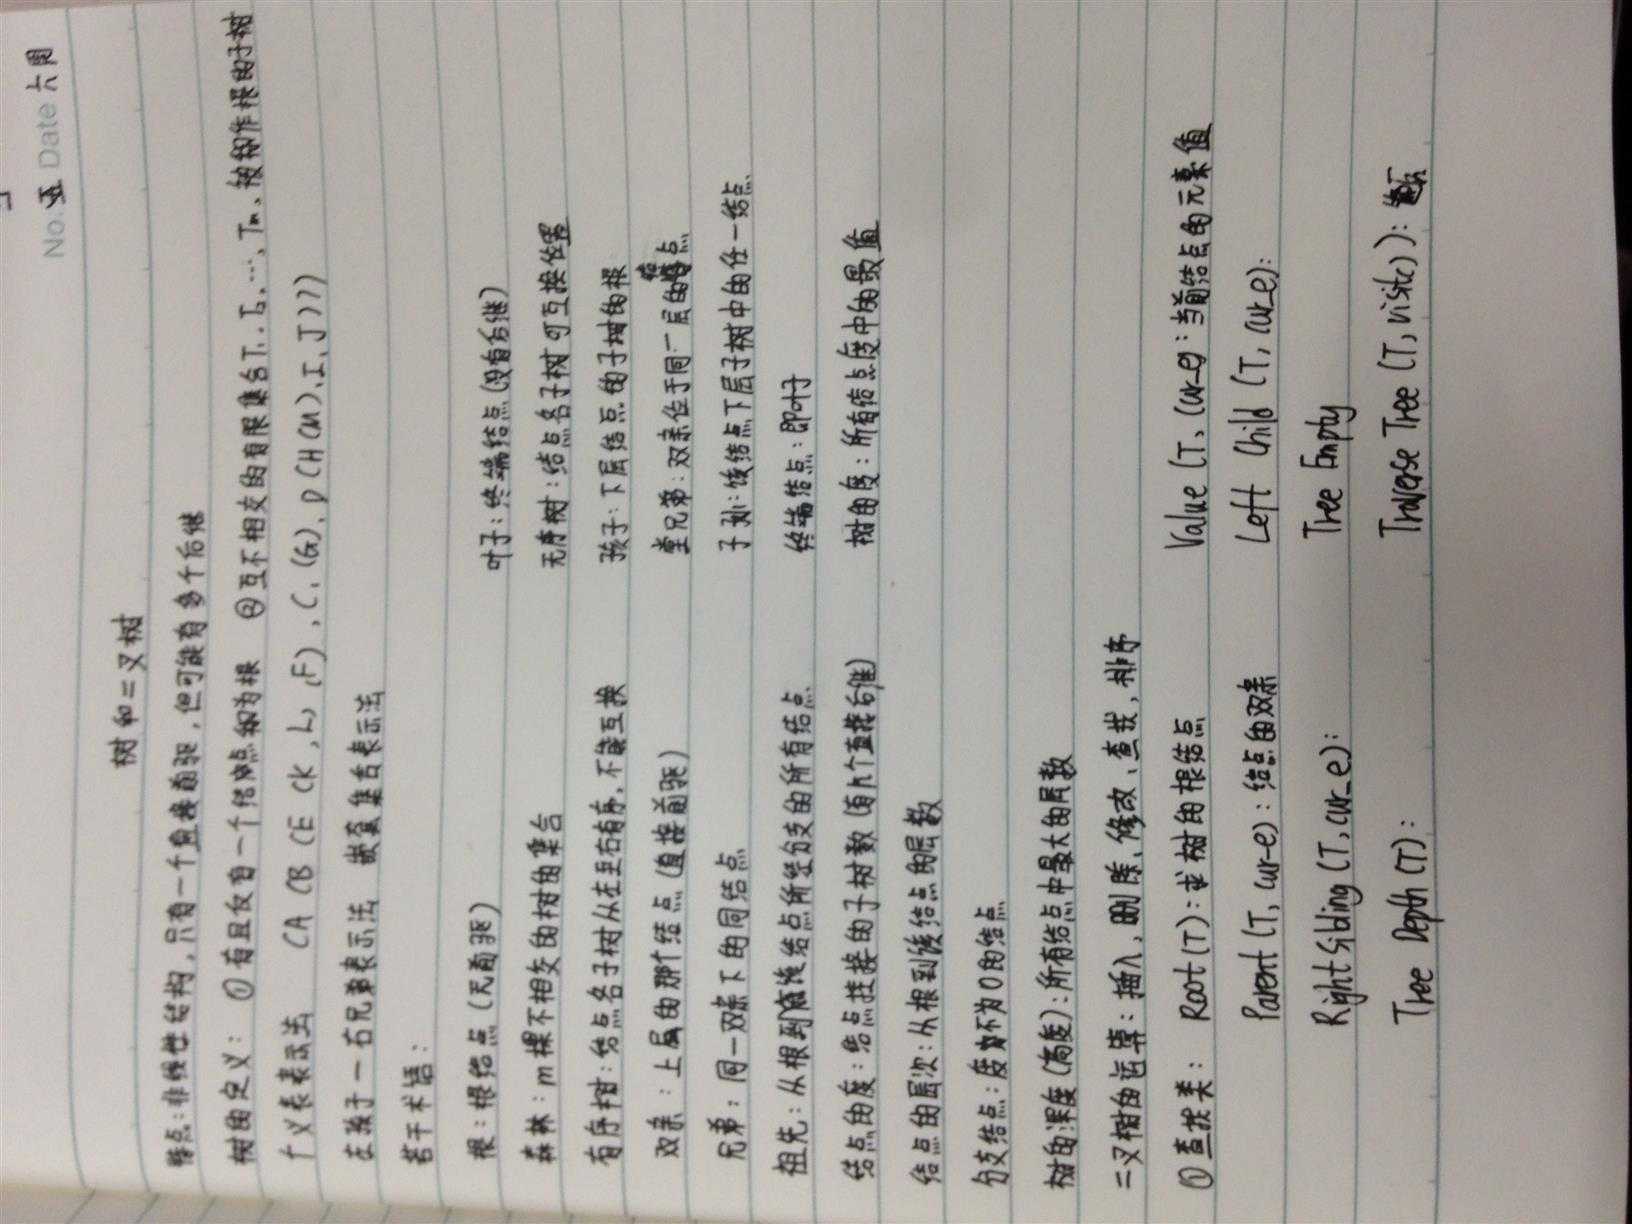 No. 五 Date 六周
树和二叉树
特点:非线性结构,只有一个直接前驱,但可能有多个后继
树的定义:①有且仅有一个结点称为根 ②互不相交的有限集合T₁,T₂,…,Tm,被称作根的子树
广义表表示法 (A (B (E (K,L),F),C,(G),D(H(M),I,J)))
左孩子一右兄弟表示法 嵌套集合表示法
若干术语:
根:根结点(无前驱) 叶子:终端结点(没有后继)
森林:m棵不相交的树的集合 无序树:结点各子树可互换位置
有序树:结点各子树从左至右有序,不能互换 孩子:下层结点的子树的根
双亲:上层的那个结点(直接前驱) 堂兄弟:双亲位于同一层的结点
兄弟:同一双亲下的同结点 子孙:该结点下层子树中的任一结点
祖先:从根到该结点所经分支的所有结点 终端结点:即叶子
结点的度:结点挂接的子树数(有几个直接后继) 树的度:所有结点度中的最值
结点的层次:从根到该结点的层数
分支结点:度不为0的结点
树的深度(高度):所有结点中最大的层数
二叉树的运算:插入,删除、修改、查找,排序
①查找类: Root(T):求树的根结点 Value(T,cur_e:当前结点的元素值
Parent(T,cur-e):结点的双亲 Left Child (T,cur_e):
Right Sibling(T,cur_e): Tree Empty
Tree Depth(T): Traverse Tree (T,visit()):